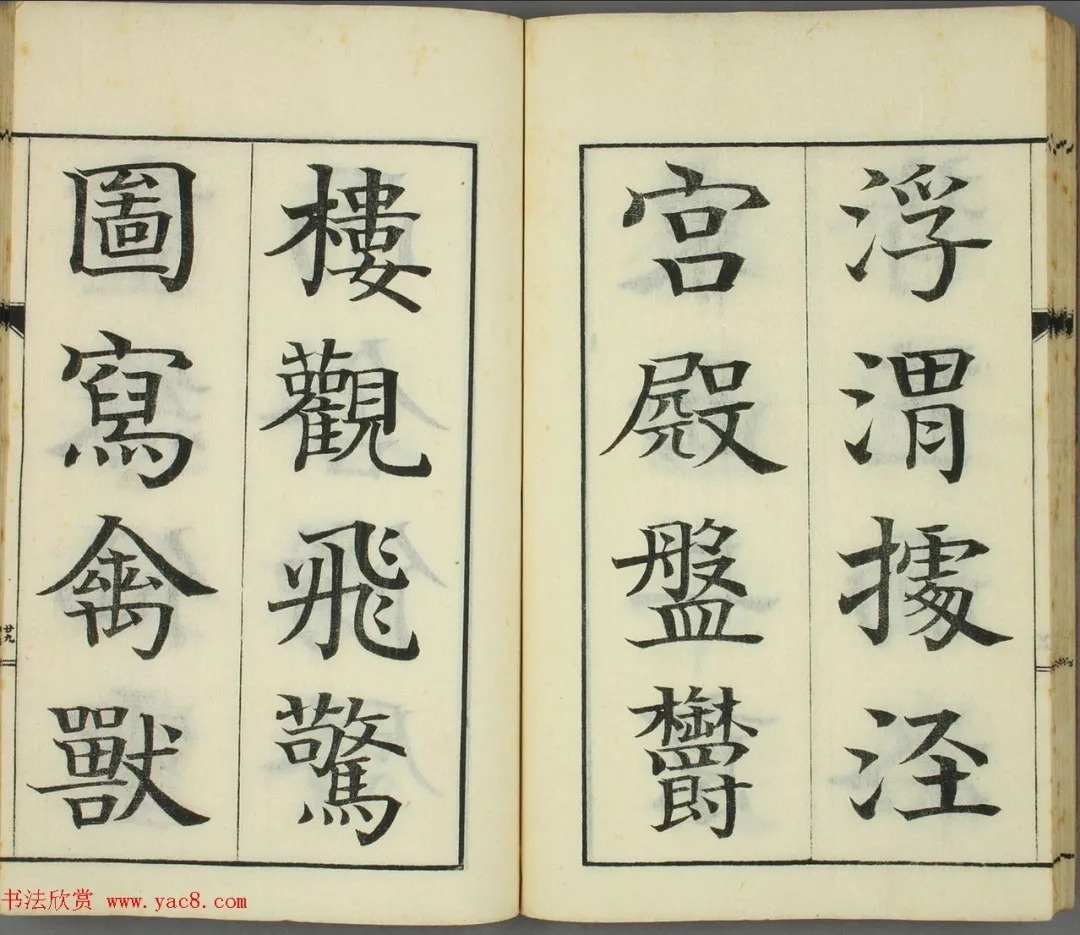 浮渭據涇
宮殿盤鬱
樓觀飛驚
圖寫禽獸
廿九
书法欣赏 www.yac8.com